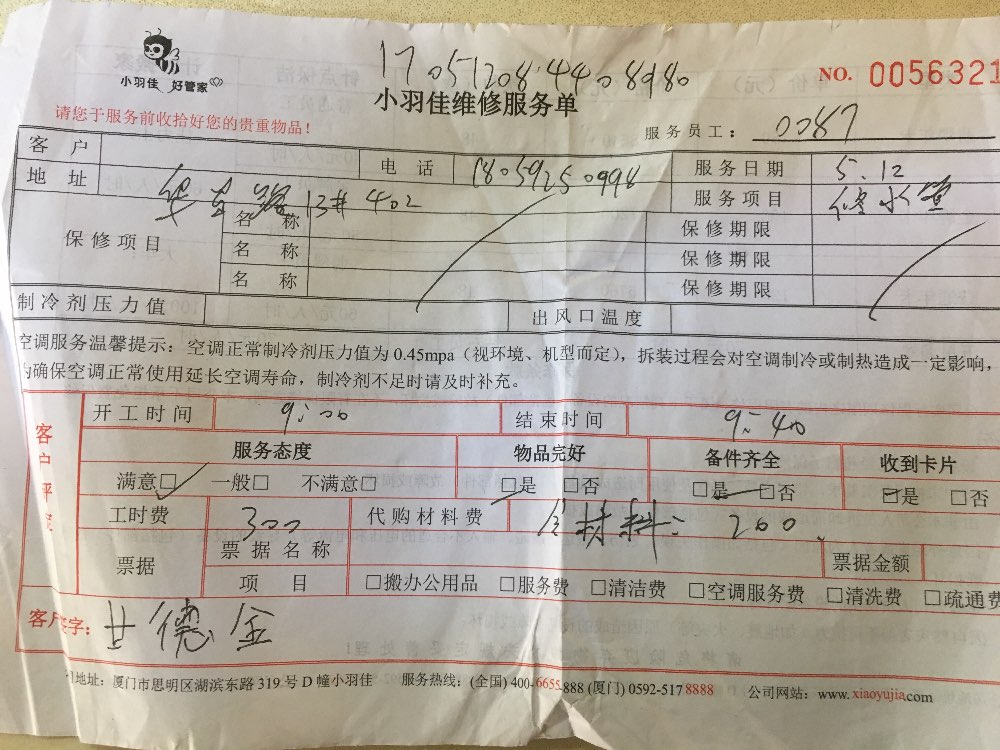 小羽佳 好管家
17051208440 8980
小羽佳维修服务单
NO. 0056321
请您于服务前收拾好您的贵重物品！
服务员工： 0087
客 户 电 话 18059250998 服务日期 5.12
地 址 华 路13#402 服务项目 修水管
保修项目 名 称 保修期限
名 称 保修期限
名 称 保修期限
制冷剂压力值 出风口温度
空调服务温馨提示：空调正常制冷剂压力值为0.45mpa（视环境、机型而定），拆装过程会对空调制冷或制热造成一定影响，
为确保空调正常使用延长空调寿命，制冷剂不足时请及时补充。
客户评
开工时间 9:00 结束时间 9:40
服务态度 物品完好 备件齐全 收到卡片
满意□ 一般□ 不满意□ □是 □否 □是 □否 □是 □否
工时费 300 代购材料费 含材料：200.
票据 票据名称 票据金额
项 目 □搬办公用品 □服务费 □清洁费 □空调服务费 □清洗费 □疏通费
客户签字： 甘德金
地址：厦门市思明区湖滨东路319号D幢小羽佳 服务热线：(全国) 400-6655-888 (厦门) 0592-5178888 公司网站：www.xiaoyujia.com